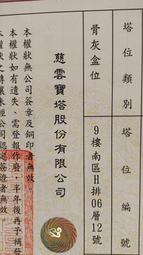 塔位類別
塔位編號
骨灰盒位
9樓南區H排06層12號
慈雲寶塔股份有限公司
本權狀無公司簽章及鋼印者無效
本權狀如有遺失、需登報作廢，半年後再予補發